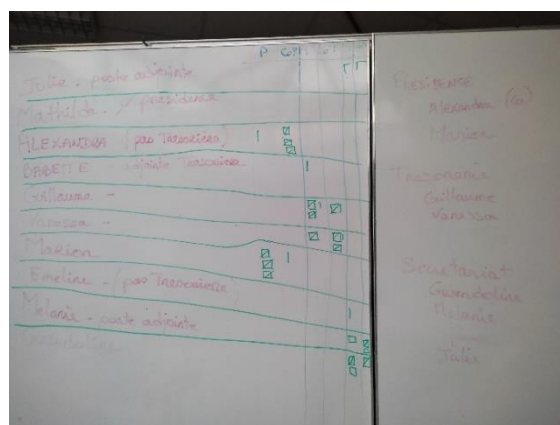 P
Julie - poste adjointe
Mathilde - / présidence
ALEXANDRA (pas Trésorière)
BABETTE - adjointe Trésorière
Guillaume -
Vanessa -
Marion
Emeline - (pas Trésorière)
Melanie - poste adjointe
Gwendoline
PRESIDENCE
Alexandra (co)
Marion
Tresorerie
Guillaume
Vanessa
Secretariat
Gwendoline
Melanie
Julie